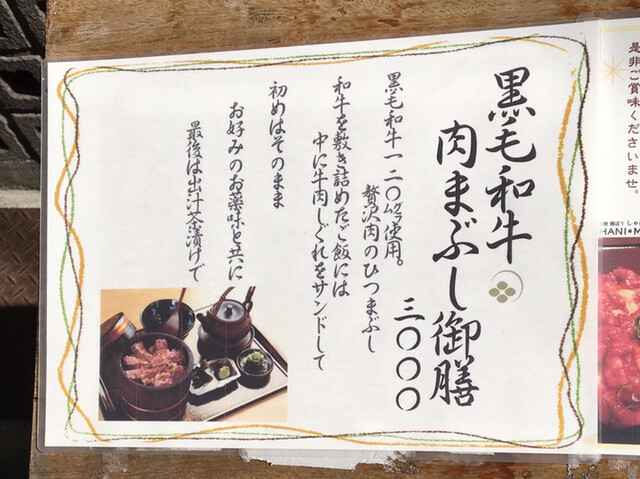 是非ご賞味くださいませ。
黒毛和牛
肉まぶし御膳
三〇〇〇
黒毛和牛一二〇㌘使用。
贅沢肉のひつまぶし
和牛を敷き詰めたご飯には
中に牛肉しぐれをサンドして
初めはそのまま
お好みのお薬味と共に
最後は出汁茶漬けで
HANI•M